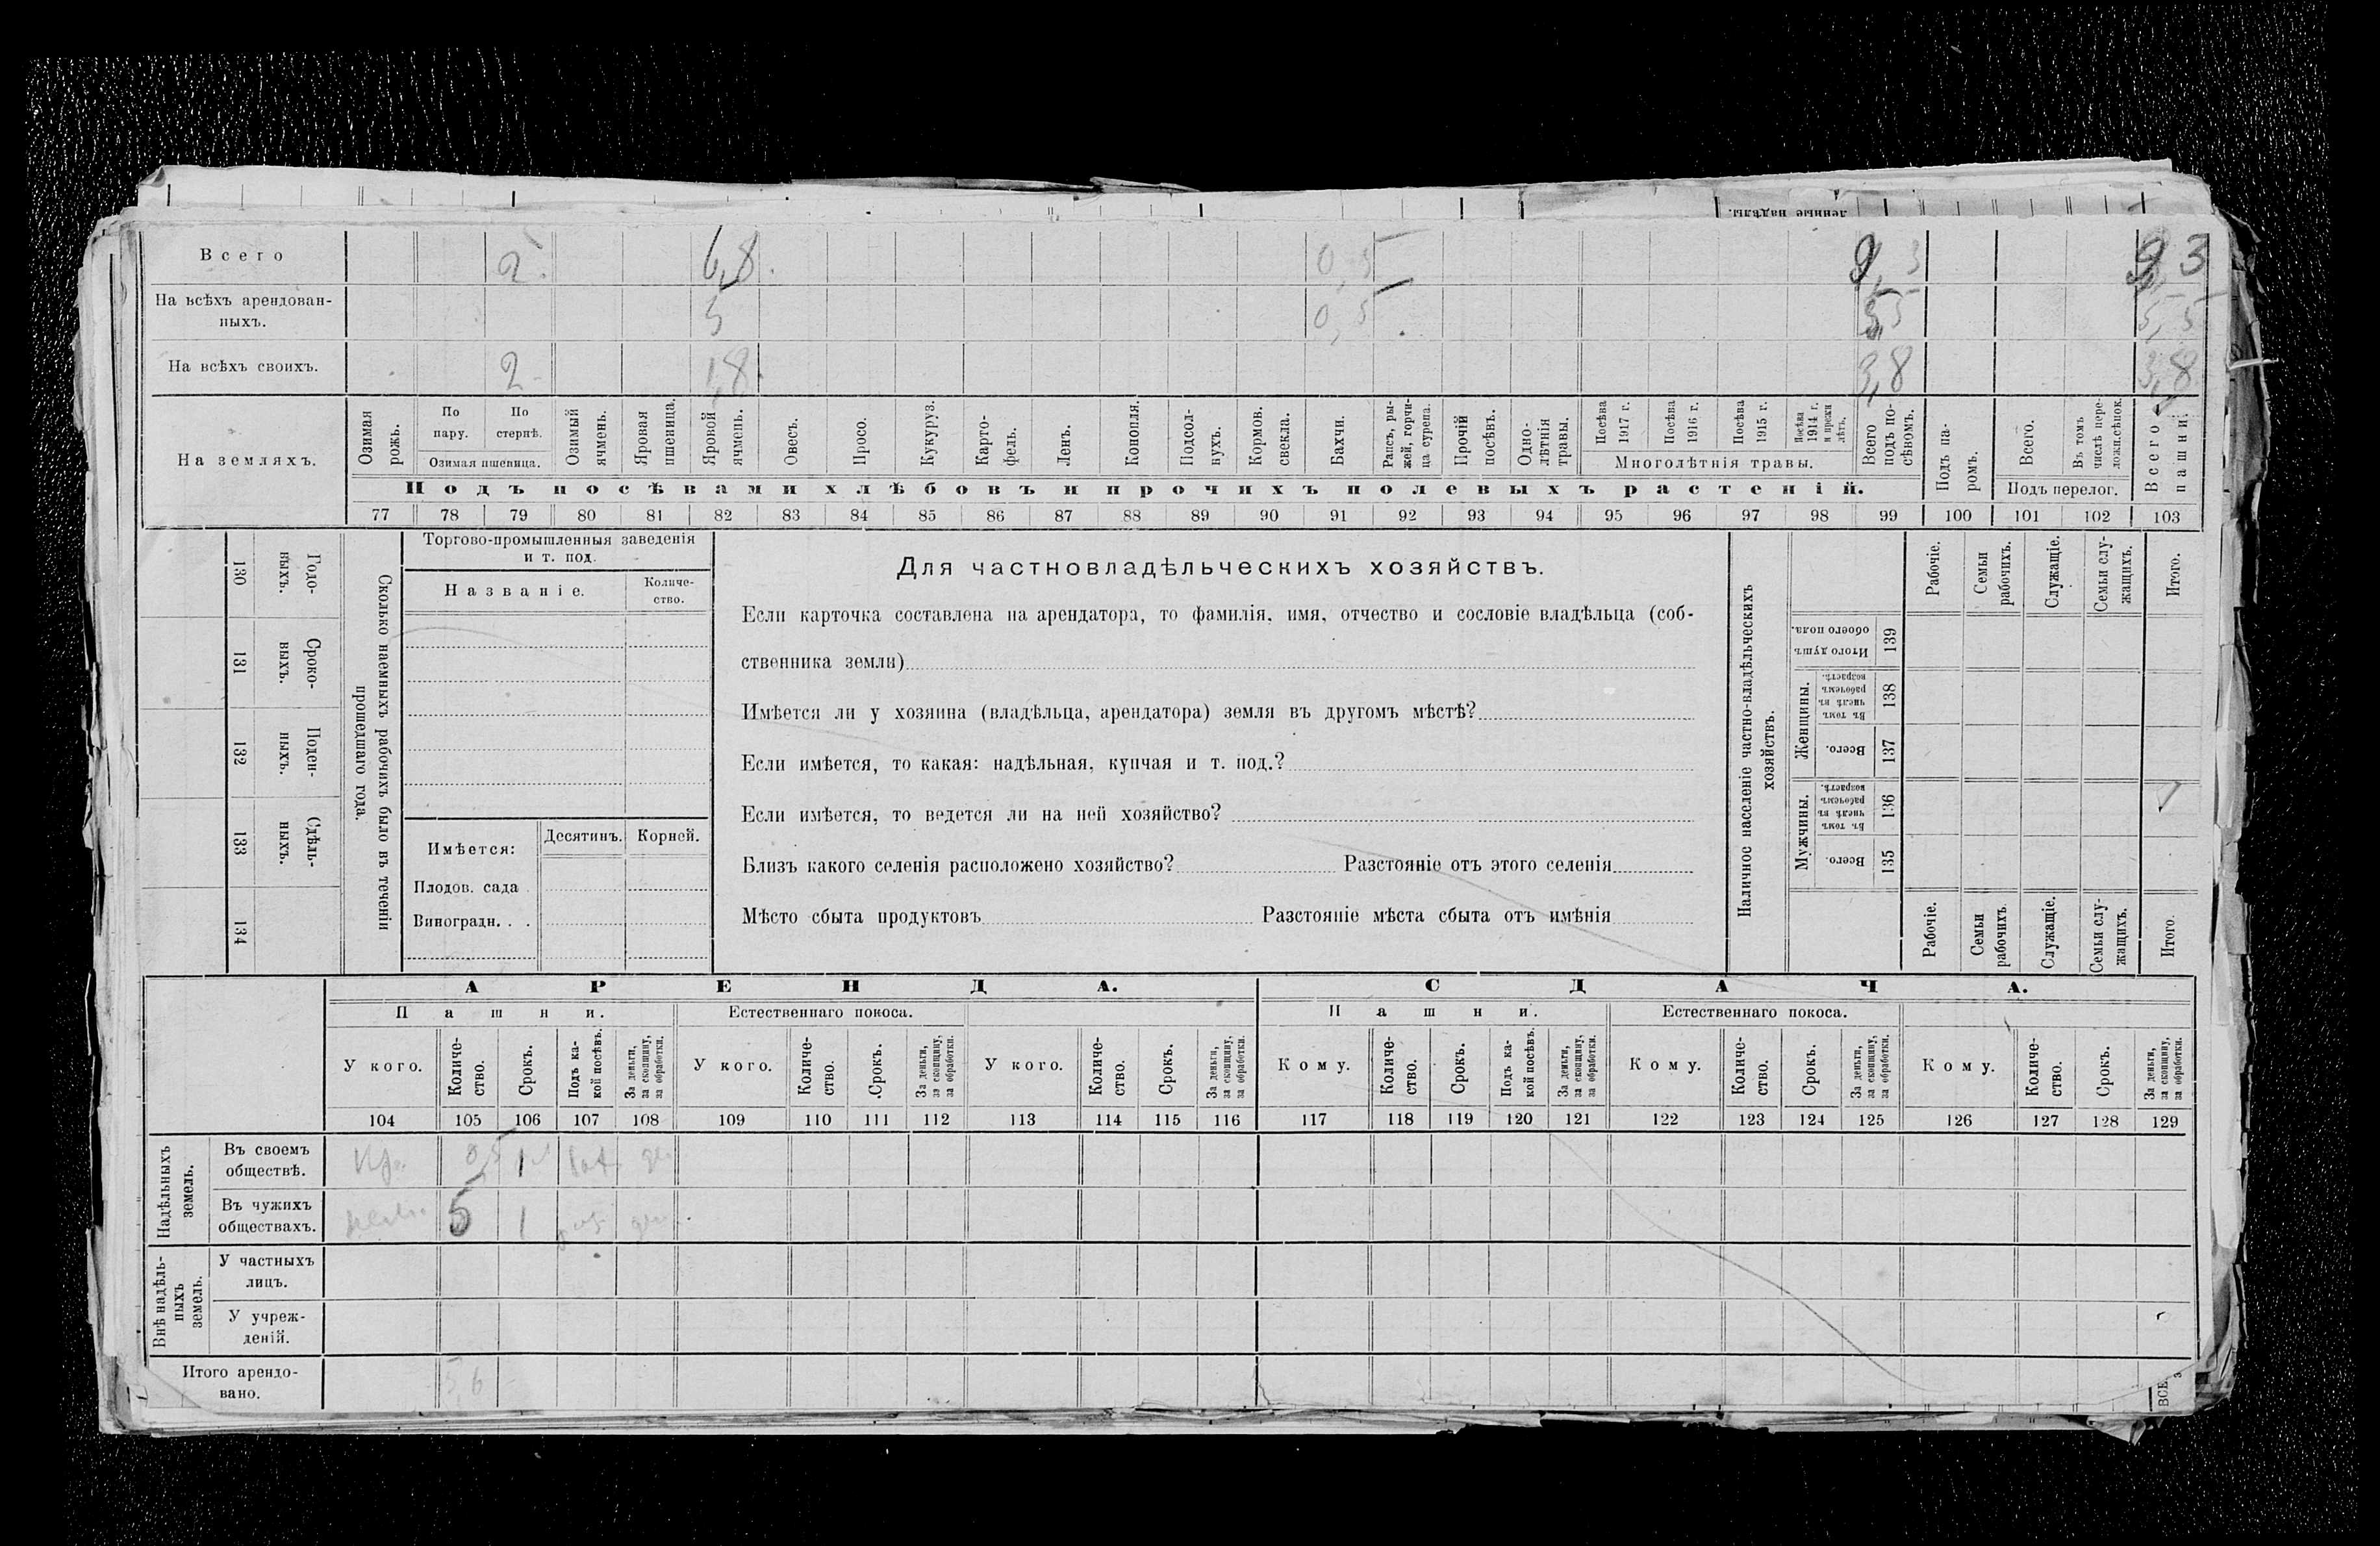 денные надѣлы.
Всего 2. 6,8. 0,5 9,3 9,3
На всѣхъ арендован-
ныхъ. 5 0,5 5,5 5,5
На всѣхъ своихъ. 2 1,8. 3,8 3,8
На земляхъ.
Озимая рожь.
По пару.
По стернѣ.
Озимая пшеница.
Озимый ячмень.
Яровая пшеница.
Яровой ячмень.
Овесъ.
Просо.
Кукуруз.
Карто-фель.
Ленъ.
Конопля.
Подсол-нухъ.
Кормов. свекла.
Бахчи.
Рапсъ, ры-жей, горчи-ца сурепа.
Прочій посѣвъ.
Одно-лѣтнія травы.
Посѣва 1917 г.
Посѣва 1916 г.
Посѣва 1915 г.
Посѣва 1914 г. и прежн лѣтъ.
Многолѣтнія травы.
Всего подъ по-сѣвомъ.
Подъ па-ромъ.
Всего.
Въ томъ числѣ пере-ложн.сѣнок.
Подъ перелог.
Всего пашни.
Подъ посѣвами хлѣбовъ и прочихъ полевыхъ растеній.
77 78 79 80 81 82 83 84 85 86 87 88 89 90 91 92 93 94 95 96 97 98 99 100 101 102 103
Сколько наемныхъ рабочихъ было въ теченіи
прошедшаго года.
Годо-ныхъ. 130
Сроко-ныхъ. 131
Поден-ныхъ. 132
Сдѣль-ныхъ. 133
134
Торгово-промышленныя заведенія
и т. под.
Названіе. Количе-ство.
Имѣется: Десятинъ. Корней.
Плодов. сада
Виноградн. . .
Для частновладѣльческихъ хозяйствъ.
Если карточка составлена на арендатора, то фамилія, имя, отчество и сословіе владѣльца (соб-
ственника земли)
Имѣется ли у хозяина (владѣльца, арендатора) земля въ другомъ мѣстѣ?
Если имѣется, то какая: надѣльная, купчая и т. под.?
Если имѣется, то ведется ли на ней хозяйство?
Близъ какого селенія расположено хозяйство? Разстояніе отъ этого селенія
Мѣсто сбыта продуктовъ Разстояніе мѣста сбыта отъ имѣнія
Наличнос населеніе частно-владѣльческихъ
хозяйствъ.
Рабочіе.
Семьи рабочихъ.
Служащіе.
Семьи слу-жащихъ.
Итого.
Итого душъ обоего пола. 139
Женщины.
Въ томъ числѣ въ рабочемъ возрастѣ. 138
Всего. 137
Мужчины.
Въ томъ числѣ въ рабочемъ возрастѣ. 136
Всего. 135
Рабочіе.
Семьи рабочихъ.
Служащіе.
Семьи слу-жащихъ.
Итого.
АРЕНДА. СДАЧА.
Пашни. Естественнаго покоса. Пашни. Естественнаго покоса.
У кого. Количе-ство. Срокъ. Подъ ка-кой посѣвъ. За деньги, за скопщину, за обработки.
У кого. Количе-ство. Срокъ. За деньги, за скопщину, за обработки.
У кого. Количе-ство. Срокъ. За деньги, за скопщину, за обработки.
Кому. Количе-ство. Срокъ. Подъ ка-кой посѣвъ. За деньги, за скопщину, за обработки.
Кому. Количе-ство. Срокъ. За деньги, за скопщину, за обработки.
Кому. Количе-ство. Срокъ. За деньги, за скопщину, за обработки.
104 105 106 107 108 109 110 111 112 113 114 115 116 117 118 119 120 121 122 123 124 125 126 127 128 129
Надѣльныхъ земель.
Въ своемъ
обществѣ. 0,5 1
Въ чужихъ
обществахъ. 5 1
Внѣ надѣль-ныхъ земель.
У частныхъ
лицъ.
У учреж-
деній.
Итого арендо-
вано. 5,6
ВСЕ